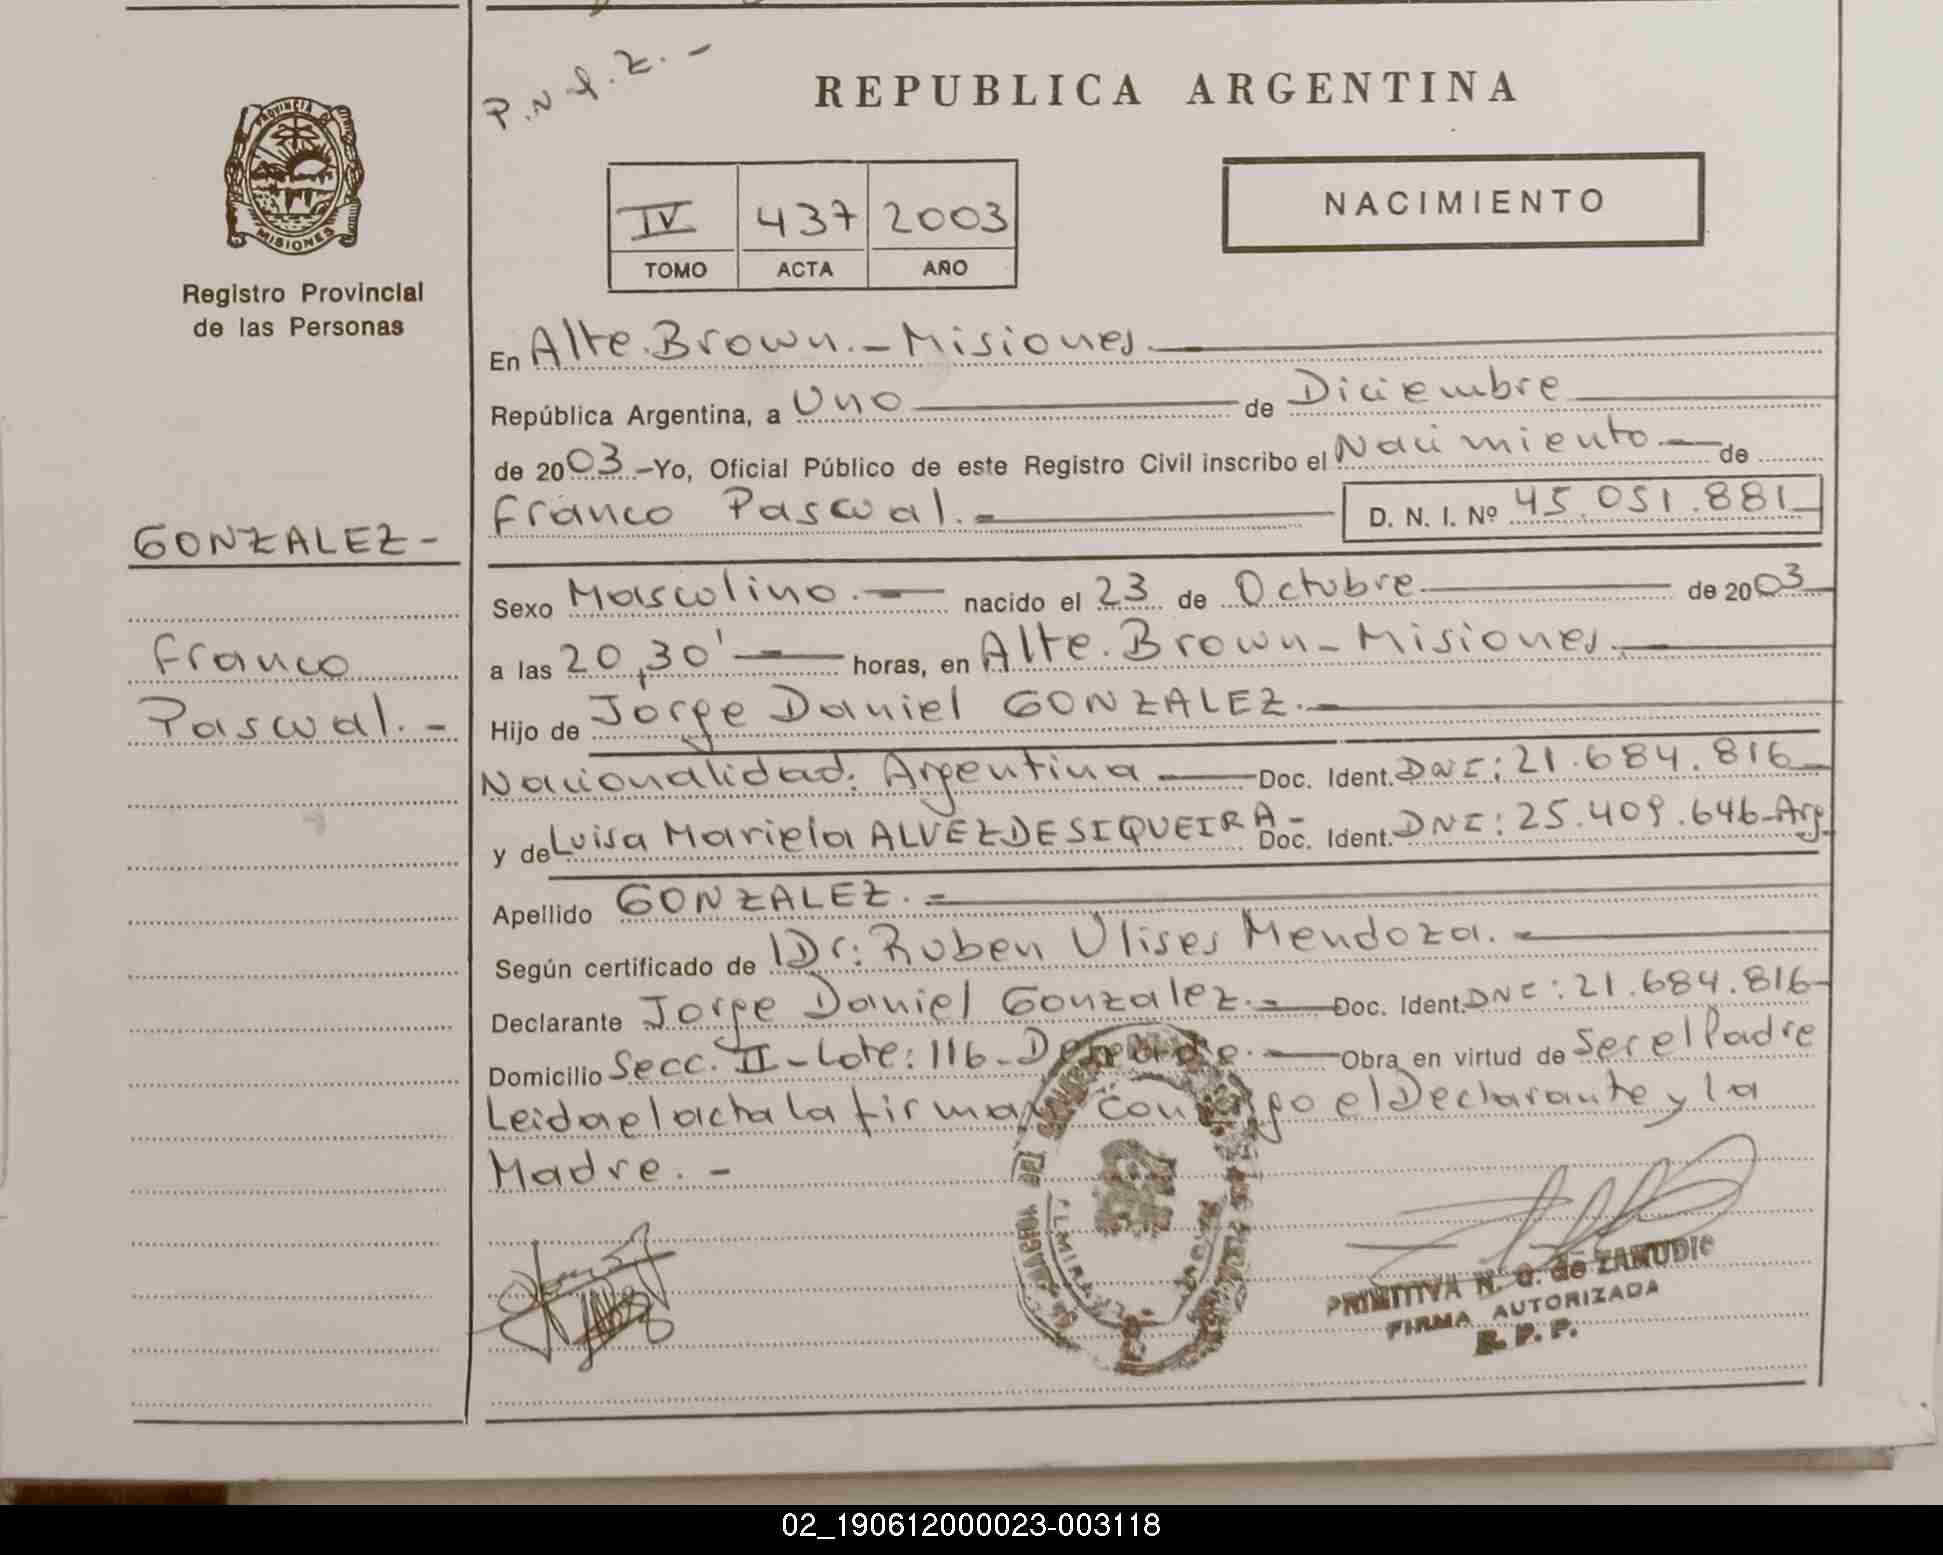 P.N.G.Z.-
REPUBLICA ARGENTINA
PROVINCIA DE
MISIONES
Registro Provincial
de las Personas
IV 437 2003
TOMO ACTA AÑO
NACIMIENTO
En Alte. Brown.- Misiones
República Argentina, a Uno de Diciembre
de 2003 -Yo, Oficial Público de este Registro Civil inscribo el Nacimiento.- de
Franco Pascual.- D. N. I. Nº 45.051.881
GONZALEZ-
Franco
Pascual.-
Sexo Mascolino.- nacido el 23 de Octubre de 2003
a las 20,30' horas, en Alte. Brown - Misiones
Hijo de Jorge Daniel GONZALEZ.-
Nacionalidad: Argentina Doc. Ident. DNI: 21.684.816
y de Luisa Mariela ALVEZ DE SIQUEIRA- Doc. Ident. DNI: 25.409.646-Arg
Apellido GONZALEZ.-
Según certificado de Dr: Ruben Ulises Mendoza.-
Declarante Jorge Daniel Gonzalez.- Doc. Ident. DNI: 21.684.816-
Domicilio Secc. II - Lote: 116- Obra en virtud de Ser el Padre
Leida el acta la firman conmigo el Declarante y la
Madre.-
PRIMITIVA N. G. de ZAMUDIO
FIRMA AUTORIZADA
R. P. P.
02_190612000023-003118